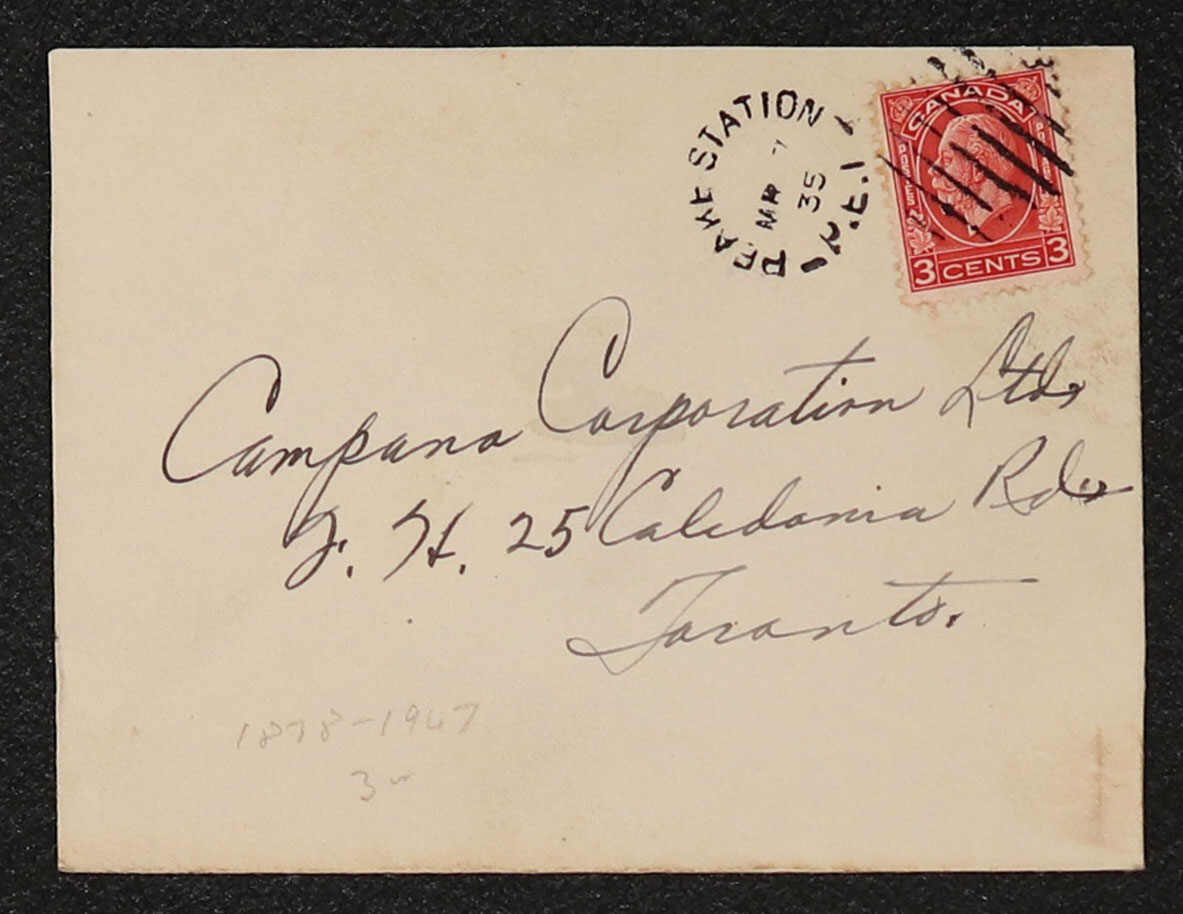 PEAKE STATION
P.E.I
MR 7
35
CANADA
POSTES POSTAGE
3 CENTS 3
Campana Corporation Ltd.
F. H. 25 Caledonia Rd.
Toronto.
1878-1947
3